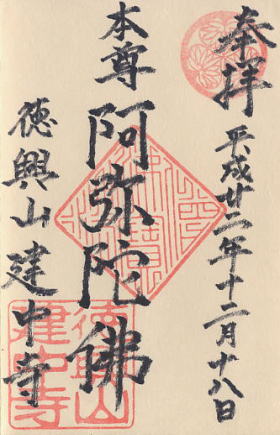 奉拝
平成廿二年十二月十八日
本尊
阿弥陀佛
徳興山建中寺
徳興山
建中寺